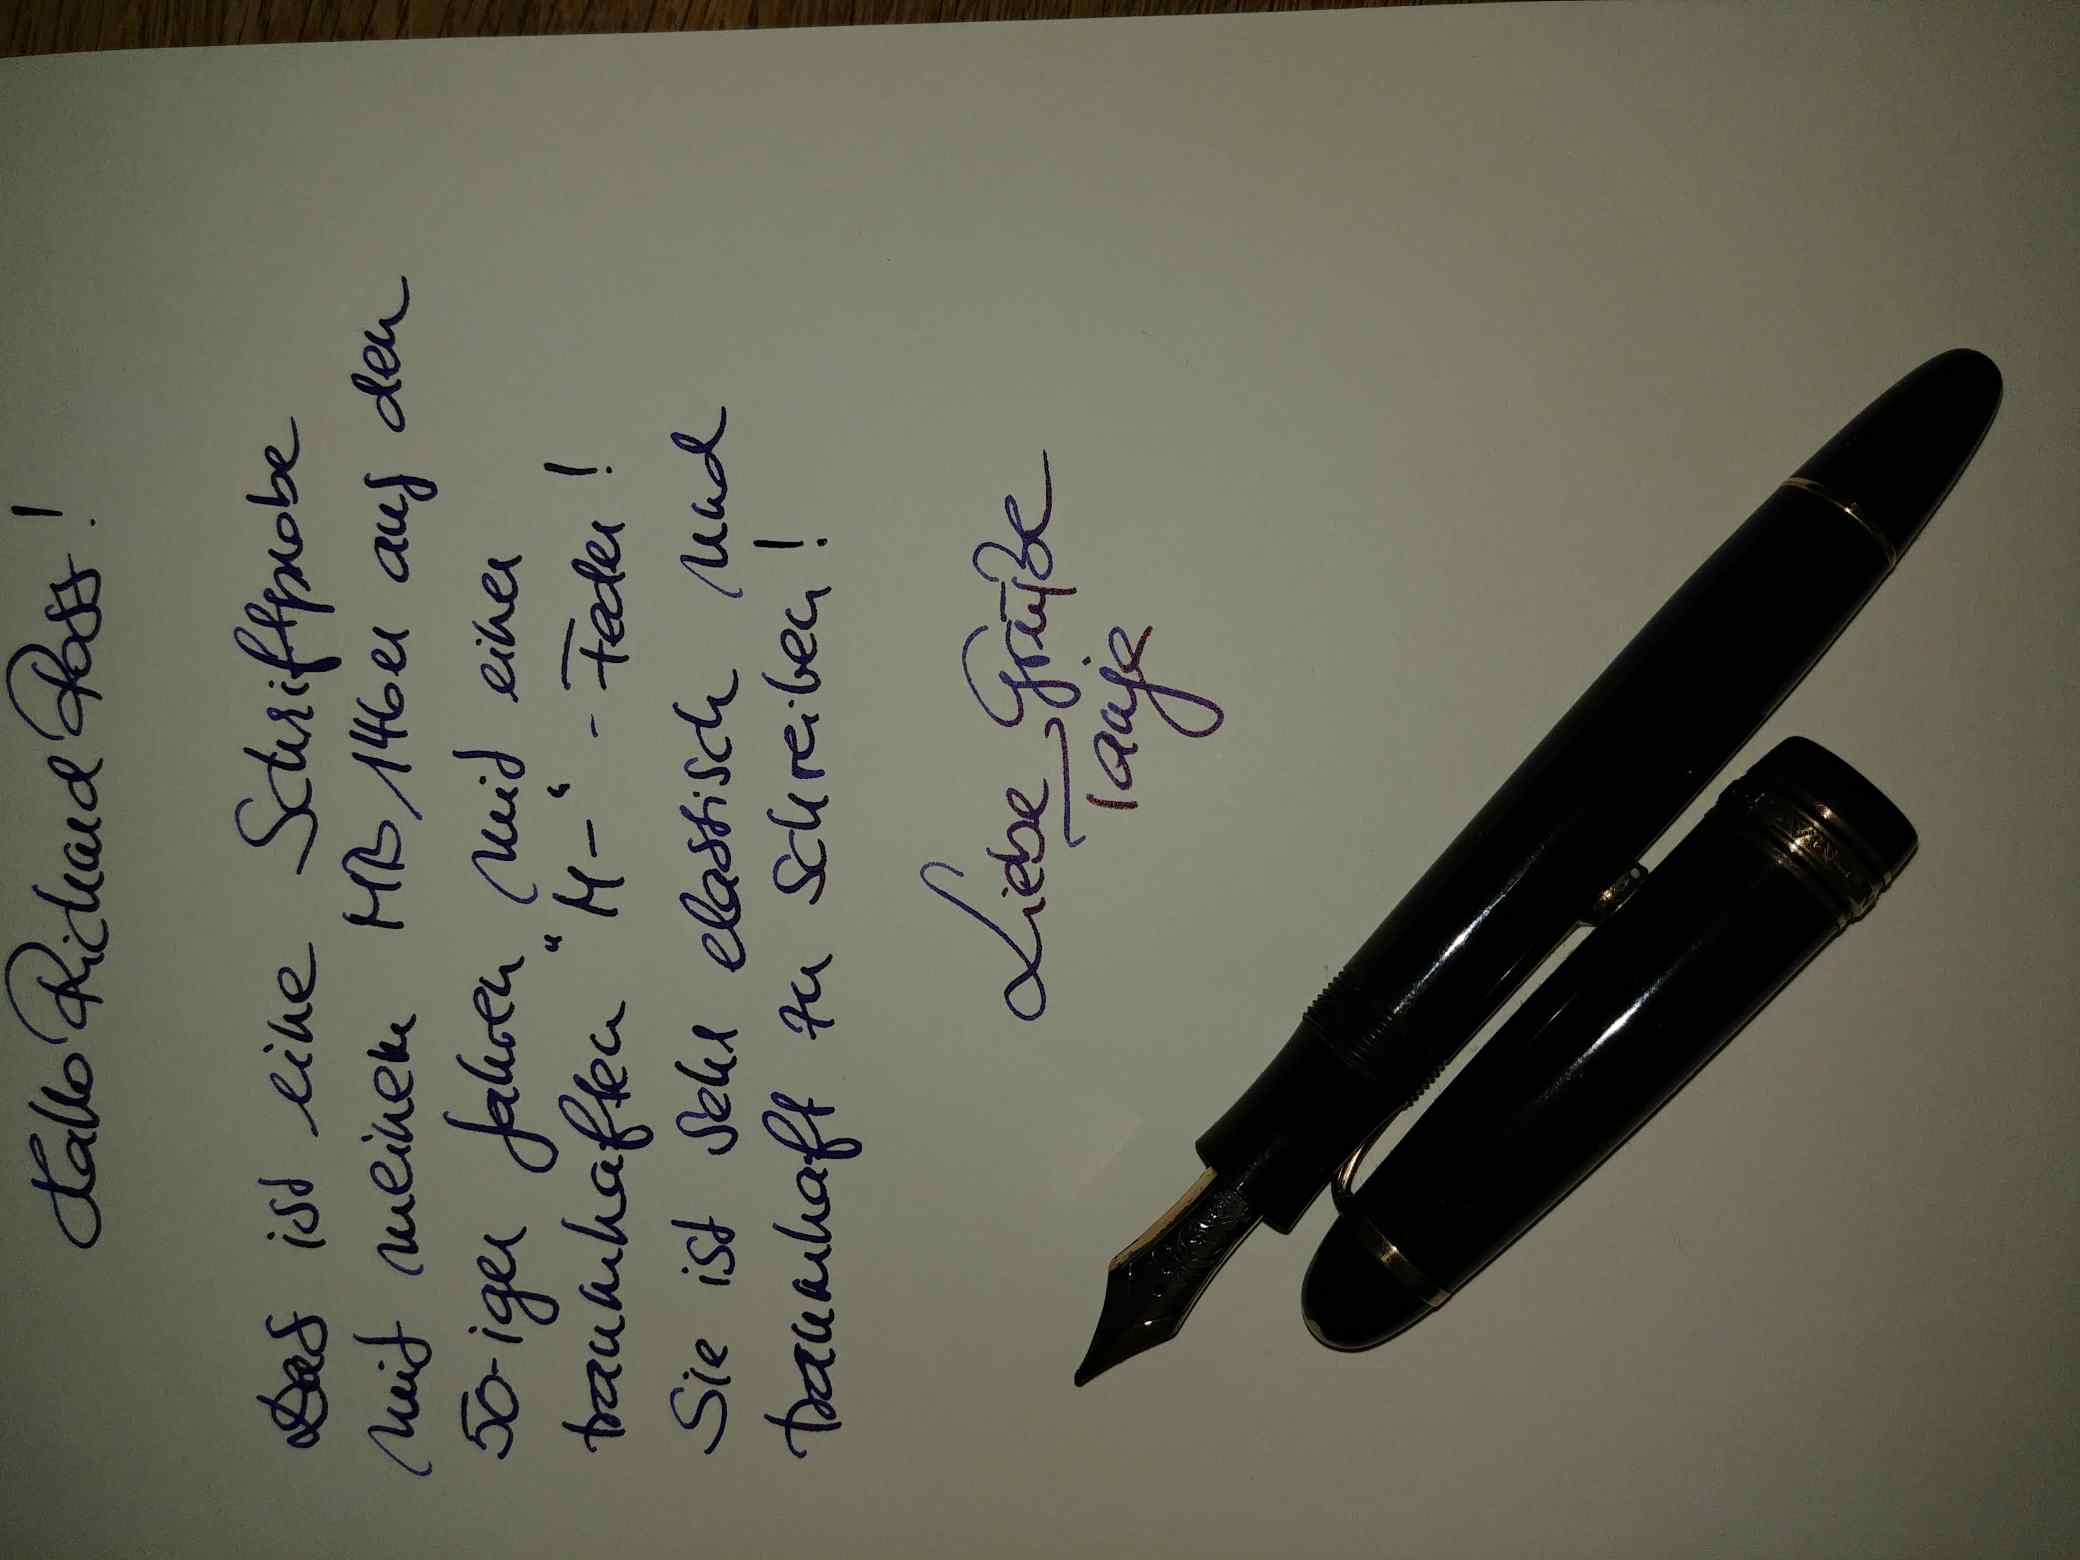 Hallo Richard Ross!
Das ist eine Schriftprobe
mit meinem MB 146er aus den
50-iger Jahren mit einer
traumhaften "M-" - Feder!
Sie ist sehr elastisch und
traumhaft zu schreiben!
Liebe Grüße
Tanja